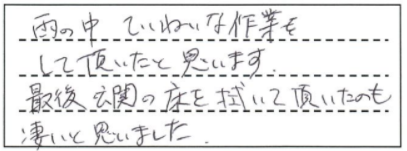 雨の中 ていねいな作業を
して頂いたと思います.
最後 玄関の床を拭いて頂いたのも
凄いと思いました.